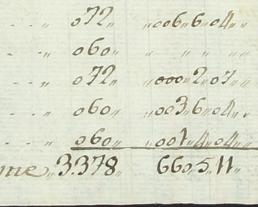 - - „ 072„ „006„6„04„„
- - „ 060„
- - „ 072„ „000„2„07„
- - „ 060„ „003„6„04„
- - „ 060„ „001„4„04„„
me„ 3.378„ 660„5„11„